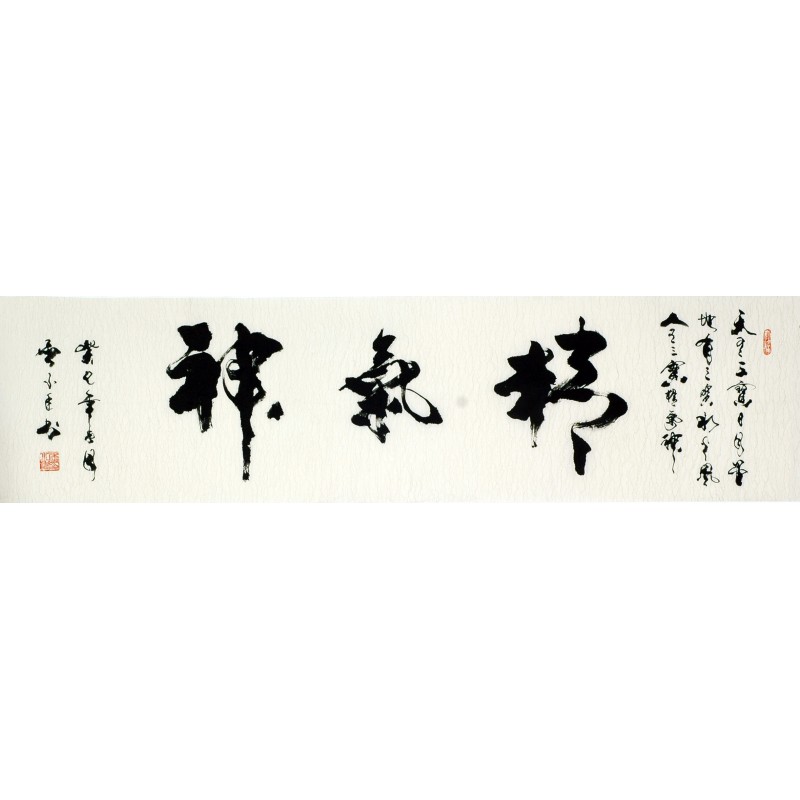 天有三寶日月星
地有三寶水火風
人有三寶精氣神
精氣神
癸巳年
書